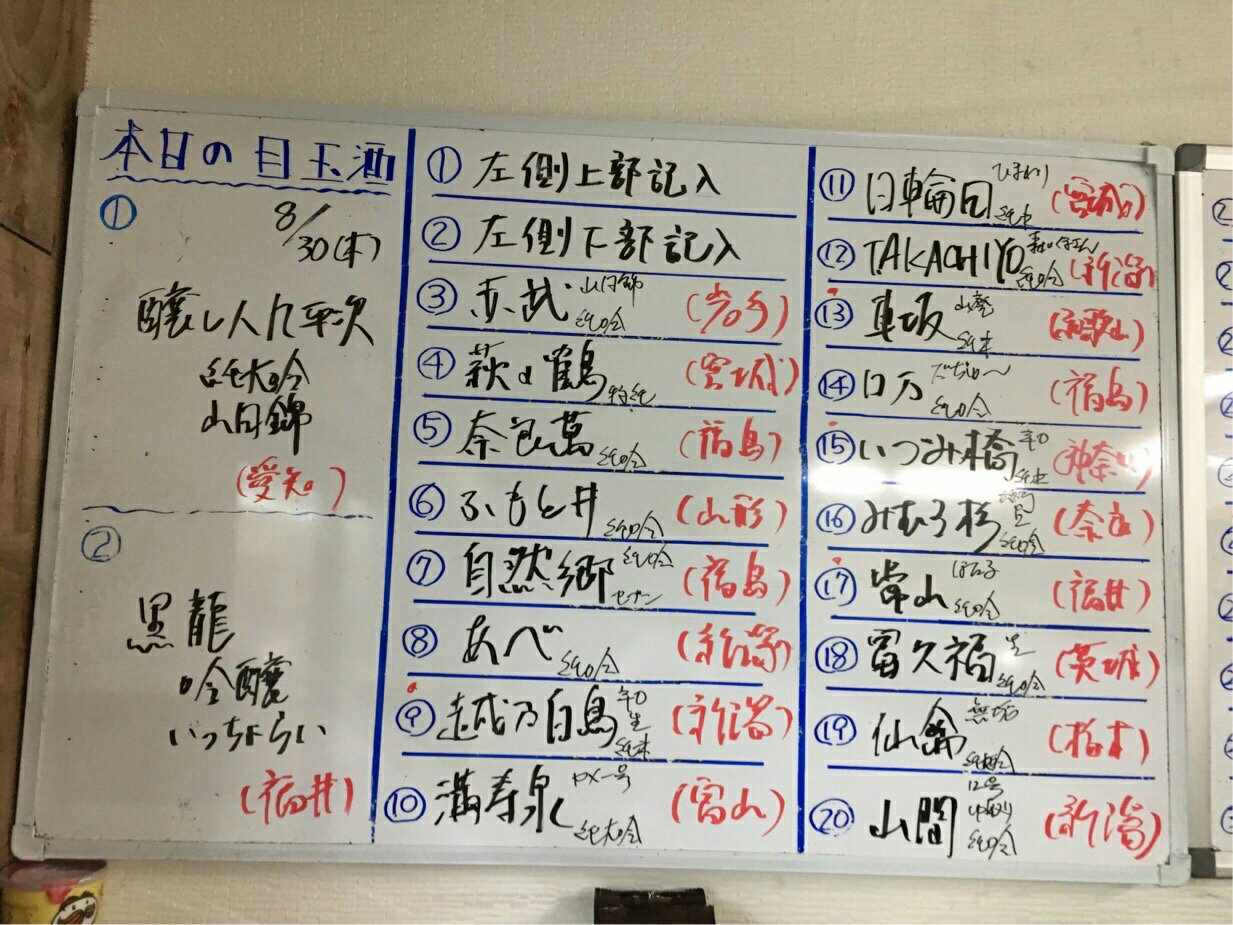 本日の目玉酒
①
8/30(木)
醸し人九平次
純大吟
山田錦
(愛知)
②
黒龍
吟醸
いっちょらい
(福井)
① 左側上部記入
② 左側下部記入
③ 赤武 山田錦 純吟 (岩手)
④ 萩の鶴 特純 (宮城)
⑤ 奈良萬 純吟 (福島)
⑥ ふもと井 純吟 (山形)
⑦ 自然郷 純吟 セブン (福島)
⑧ あべ 純吟 (新潟)
⑨ 越乃白鳥 辛口 生 純米 (新潟)
⑩ 満寿泉 PX一号 純大吟 (富山)
⑪ 日輪田 ひまわり 純米 (宮城)
⑫ TAKACHIYO 森のくまさん 純吟 (新潟)
⑬ 車坂 山廃 純米 (和歌山)
⑭ ロ万 だぢゅー 純吟 (福島)
⑮ いづみ橋 辛口 純米 (神奈川)
⑯ みむろ杉 純吟 (奈良)
⑰ 常山 純吟 (福井)
⑱ 富久福 生 純吟 (茨城)
⑲ 仙禽 無垢 (栃木)
⑳ 山間 12号 中採り 純吟 (新潟)